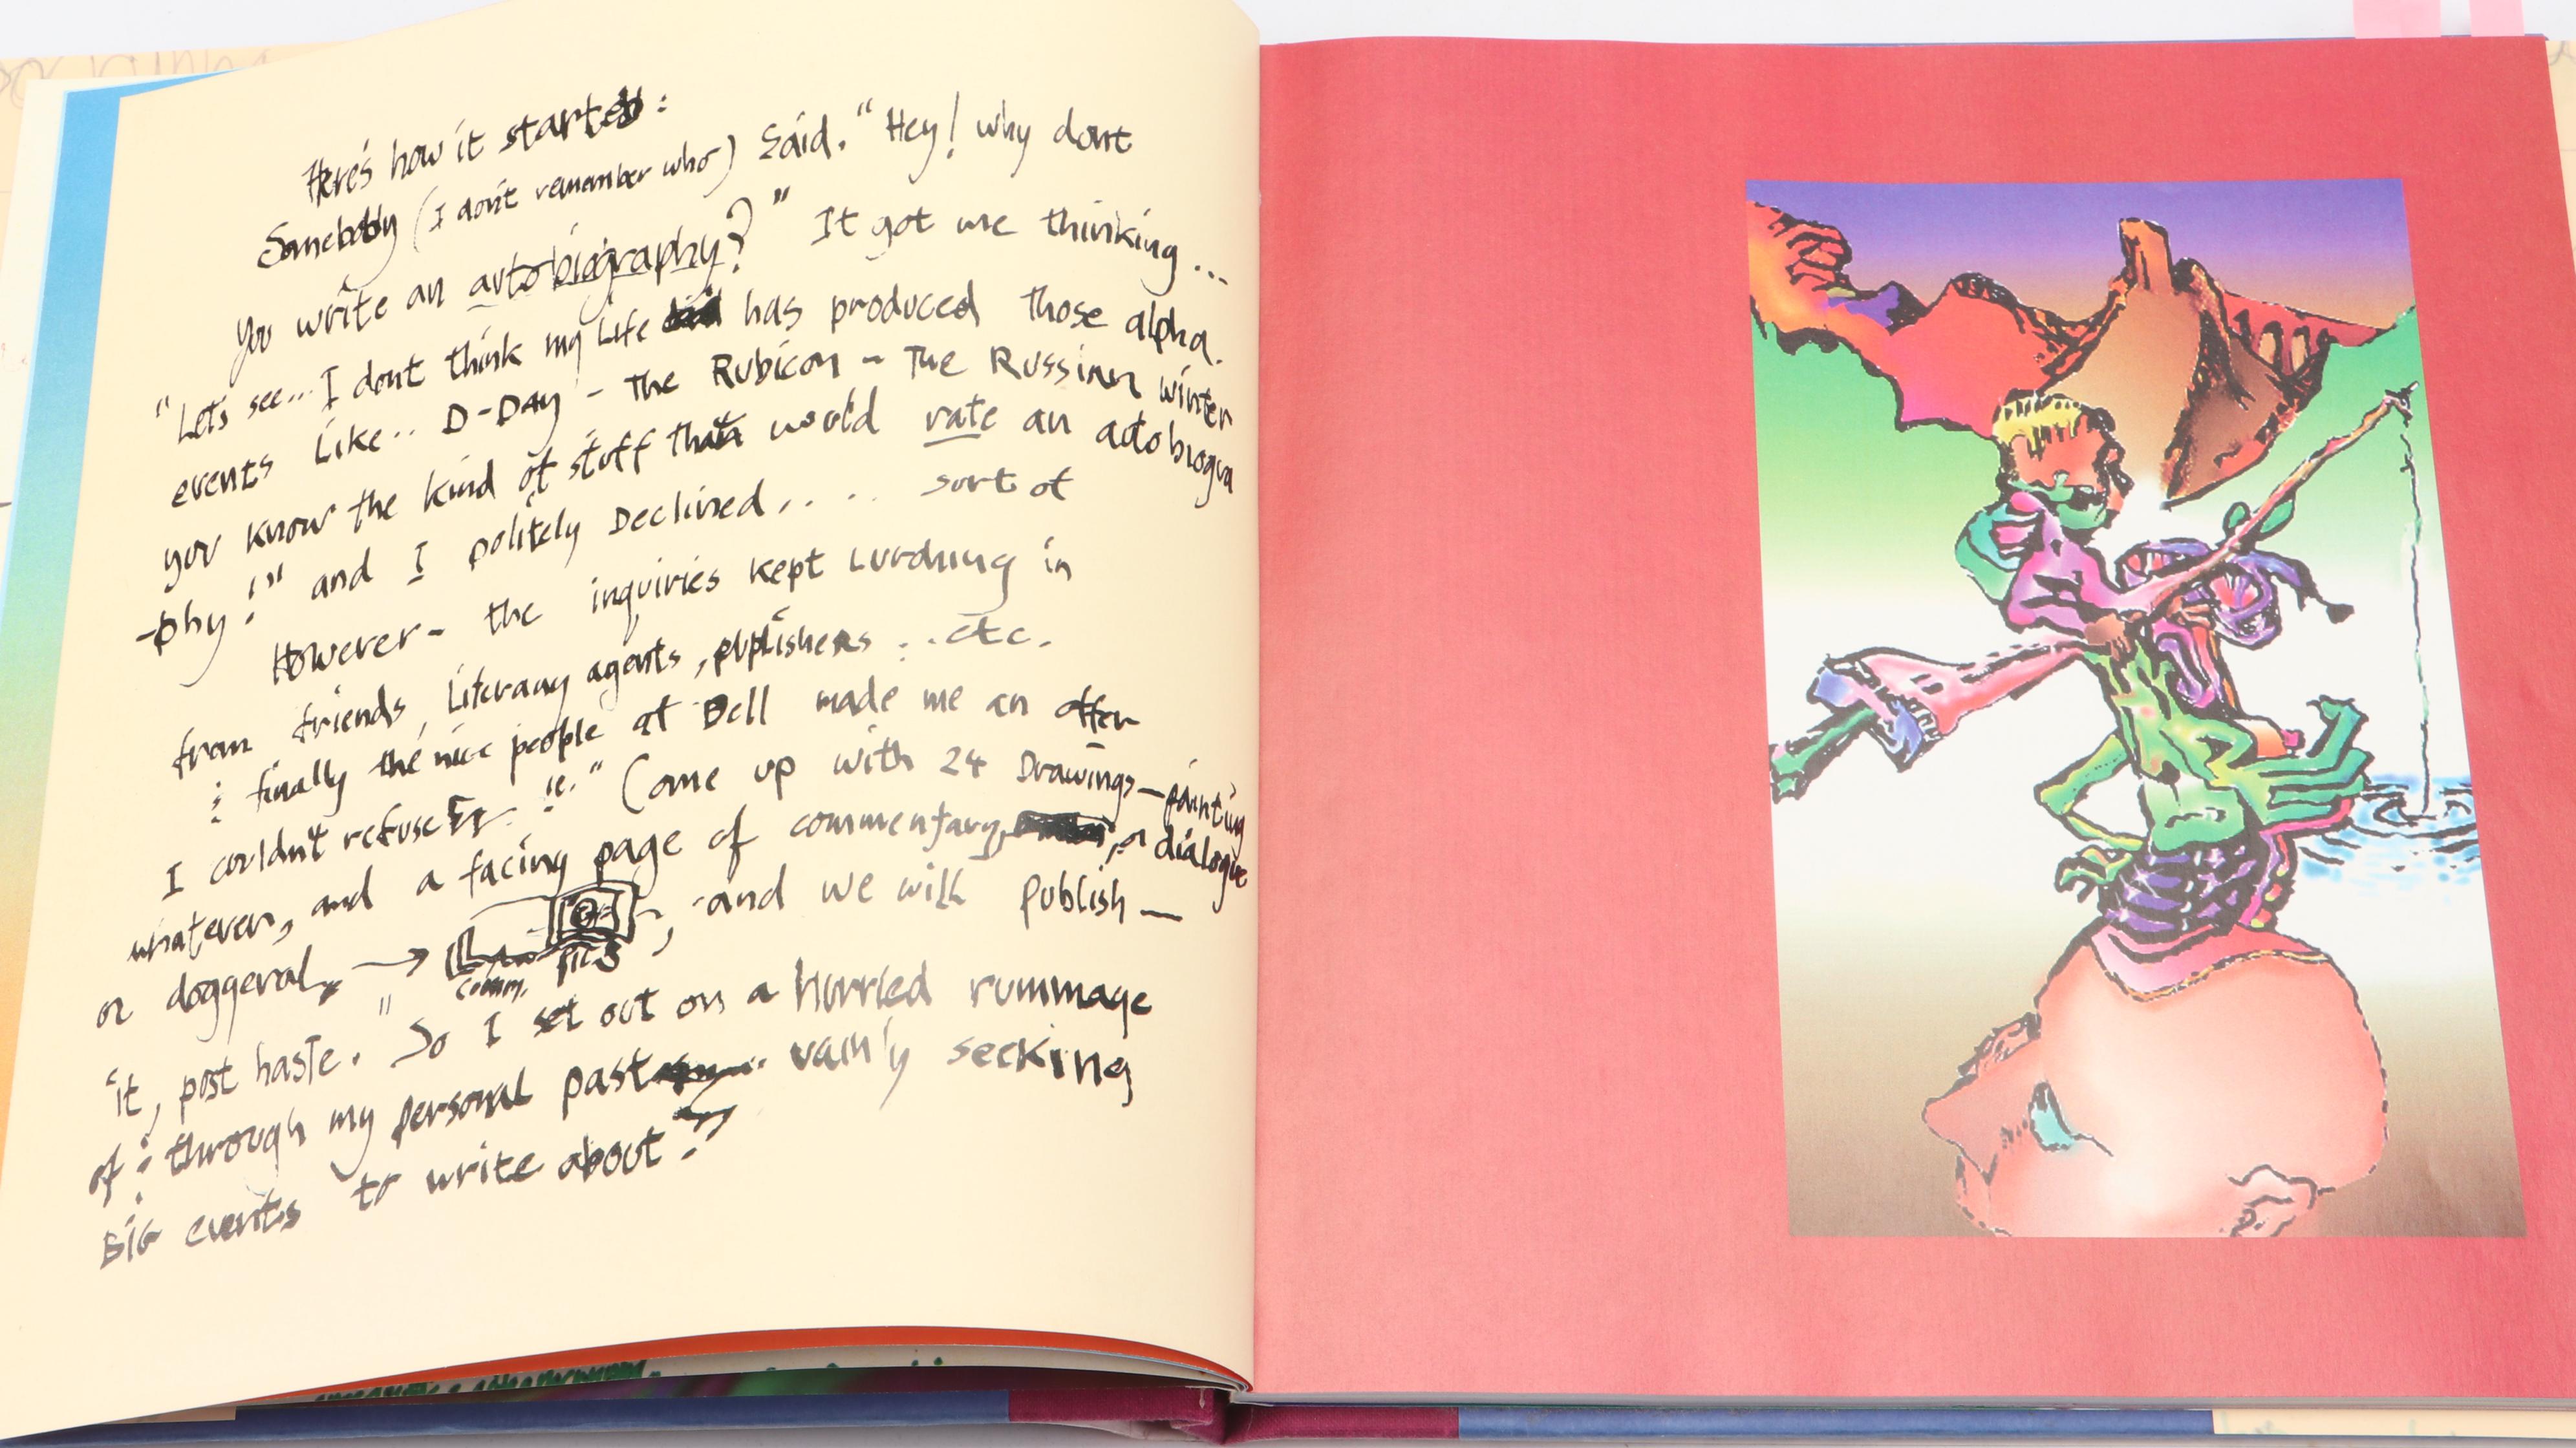 Here's how it started:
Somebody (I don't remember who) said. "Hey! why dont
you write an autobiography?" It got me thinking...
"Let's see... I dont think my Life has produced those alpha.
events Like.. D-Day - The Rubicon - The Russian winter
you know the kind of stuff that would rate an autobiogra
-phy!" and I politely Declined..... sort of
However- the inquiries kept Lurching in
from friends, Literary agents, publishers ...etc.
& finally the nice people at Dell made me an offer
I couldn't refuse "Come up with 24 Drawings-painting
whatever, and a facing page of commentary, or dialogue
or doggeral, → , and we will publish —
Comm. Pics
it, post haste." So I set out on a hurried rummage
of: through my personal past vainly seeking
BIG events to write about